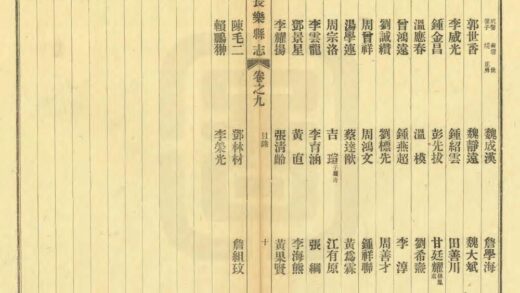 魏成漢 詹學海
郭世香 魏靜遠 魏大斌
李威光 鍾紹雲 田善川
鍾金昌 彭先拔 甘廷耀
溫應春 溫模 劉希齋
曾鴻遠 鍾燕超 李淳
劉誠纘 劉標先 周善才
周曾祥 周鴻文 鍾祥聯
湯學連 蔡達猷 黃爲霖
周宗洛 吉瑄 江有原
李雲龍 李育涵 張綱
鄧景星 黃直 李海熊
李耀揚 張清齡 黃果賢
長樂縣志 卷之九 目錄 十
陳毛二 鄧林材 詹組玟
賴鵬翀 李榮光